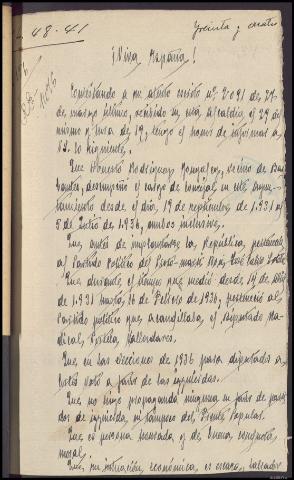 48.41
Treinta y cuatro
¡Viva España!
Contestando a su atento escrito nº 2091 de 27
de marzo último, recibido en esta Alcaldía el 29 del
mismo tengo el honor de informar a
V.S. lo siguiente.
Que Honesto Rodríguez vecino de
desempeñó el cargo de concejal en este ayun-
tamiento desde el día 19 de septiembre de 1.931 al
5 de Julio de 1.936, ambos inclusive.
Que, antes de implantarse la República, pertenecía
al Partido Político del
Que, durante el tiempo que medió desde 14 de Abril
de 1.931 hasta, 16 de Febrero de 1936, perteneció al
Partido político que acaudillaba, el Diputado Ra-
dical, Portela, Valladares.
Que en las elecciones de 1936 para diputados a
Cortes votó a favor de las izquierdas.
Que no hizo propaganda ninguna en favor de parti-
dos de izquierda, ni tampoco del Frente Popular.
Que es persona honrada, y de buena conducta
moral.
Que, su situación, económica, es escasa,